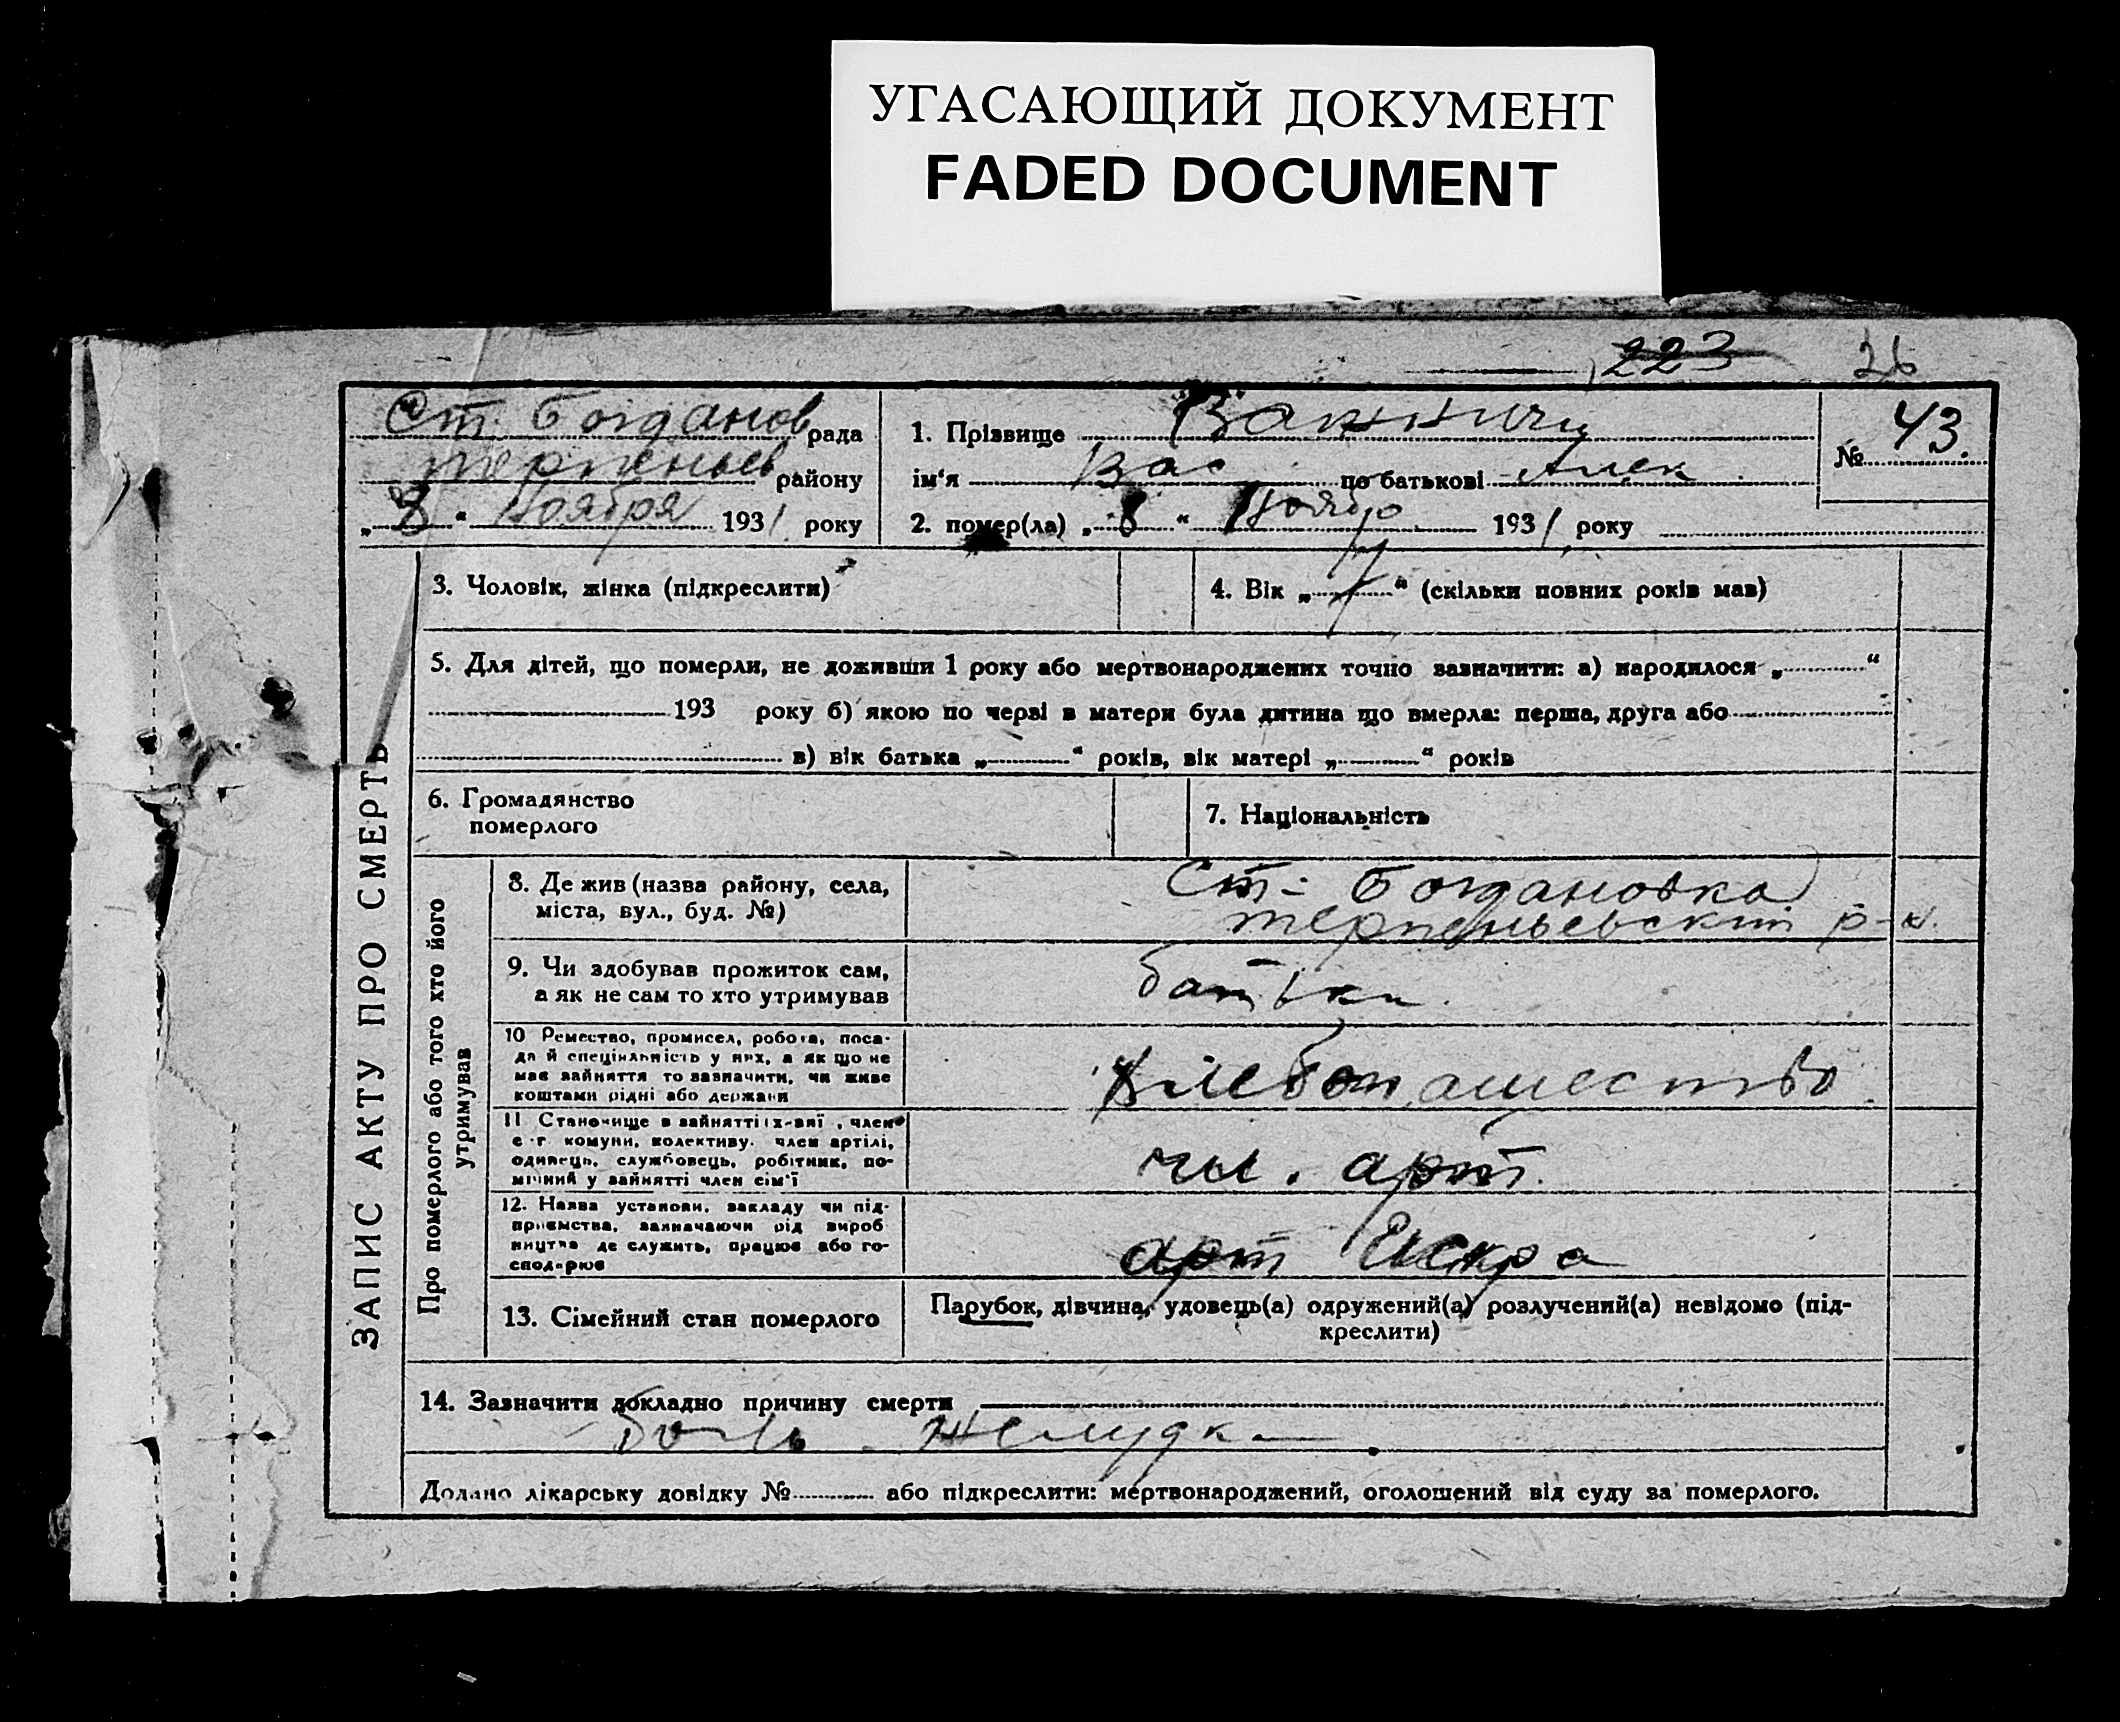 УГАСАЮЩИЙ ДОКУМЕНТ
FADED DOCUMENT
223 26
Ст. Богданов рада
Терпеньев району
„8“ Ноября 1931 року
1. Прізвище
ім‘я Вас по батькові Алек.
№ 43.
2. помер(ла) „8“ Ноябр 1931 року
3. Чоловік, жінка (підкреслити)
4. Вік „ “ (скільки повних років мав)
5. Для дітей, що померли, не доживши 1 року або мертвонароджених точно зазначити: а) народилося „ “
193 року б) якою по черві в матери була дитина що вмерла: перша, друга або
в) вік батька „ “ років, вік матері „ “ років
6. Громадянство
померлого
7. Національність
ЗАПИС АКТУ ПРО СМЕРТЬ
Про померлого або того хто його
утримував
8. Де жив (назва району, села,
міста, вул., буд. №)
Ст- Богдановка
Терпеньевский р-н.
9. Чи здобував прожиток сам,
а як не сам то хто утримував
батьки.
10 Ремество, промисел, робота, поса-
да й спеціяльність у них, а як що не
має зайняття то зазначити, чи живе
коштами рідні або держави
Хлебопашество
11 Становище в зайнятті , член
с-г комуни, колективу, член артілі,
одинець, службовець, робітник, по-
мічний у зайнятті член сім'ї
чл. арт.
12. Назва установи, закладу чи під-
приємства, зазначаючи рід вироб
ництва де служить, працює або го-
сподарює
арт Искра
13. Сімейний стан померлого
Парубок, дівчина, удовець(а) одружений(а) розлучений(а) невідомо (під-
креслити)
14. Зазначити докладно причину смерти
Боль желудка
Додано лікарську довідку № або підкреслити: мертвонароджений, оголошений від суду за померлого.